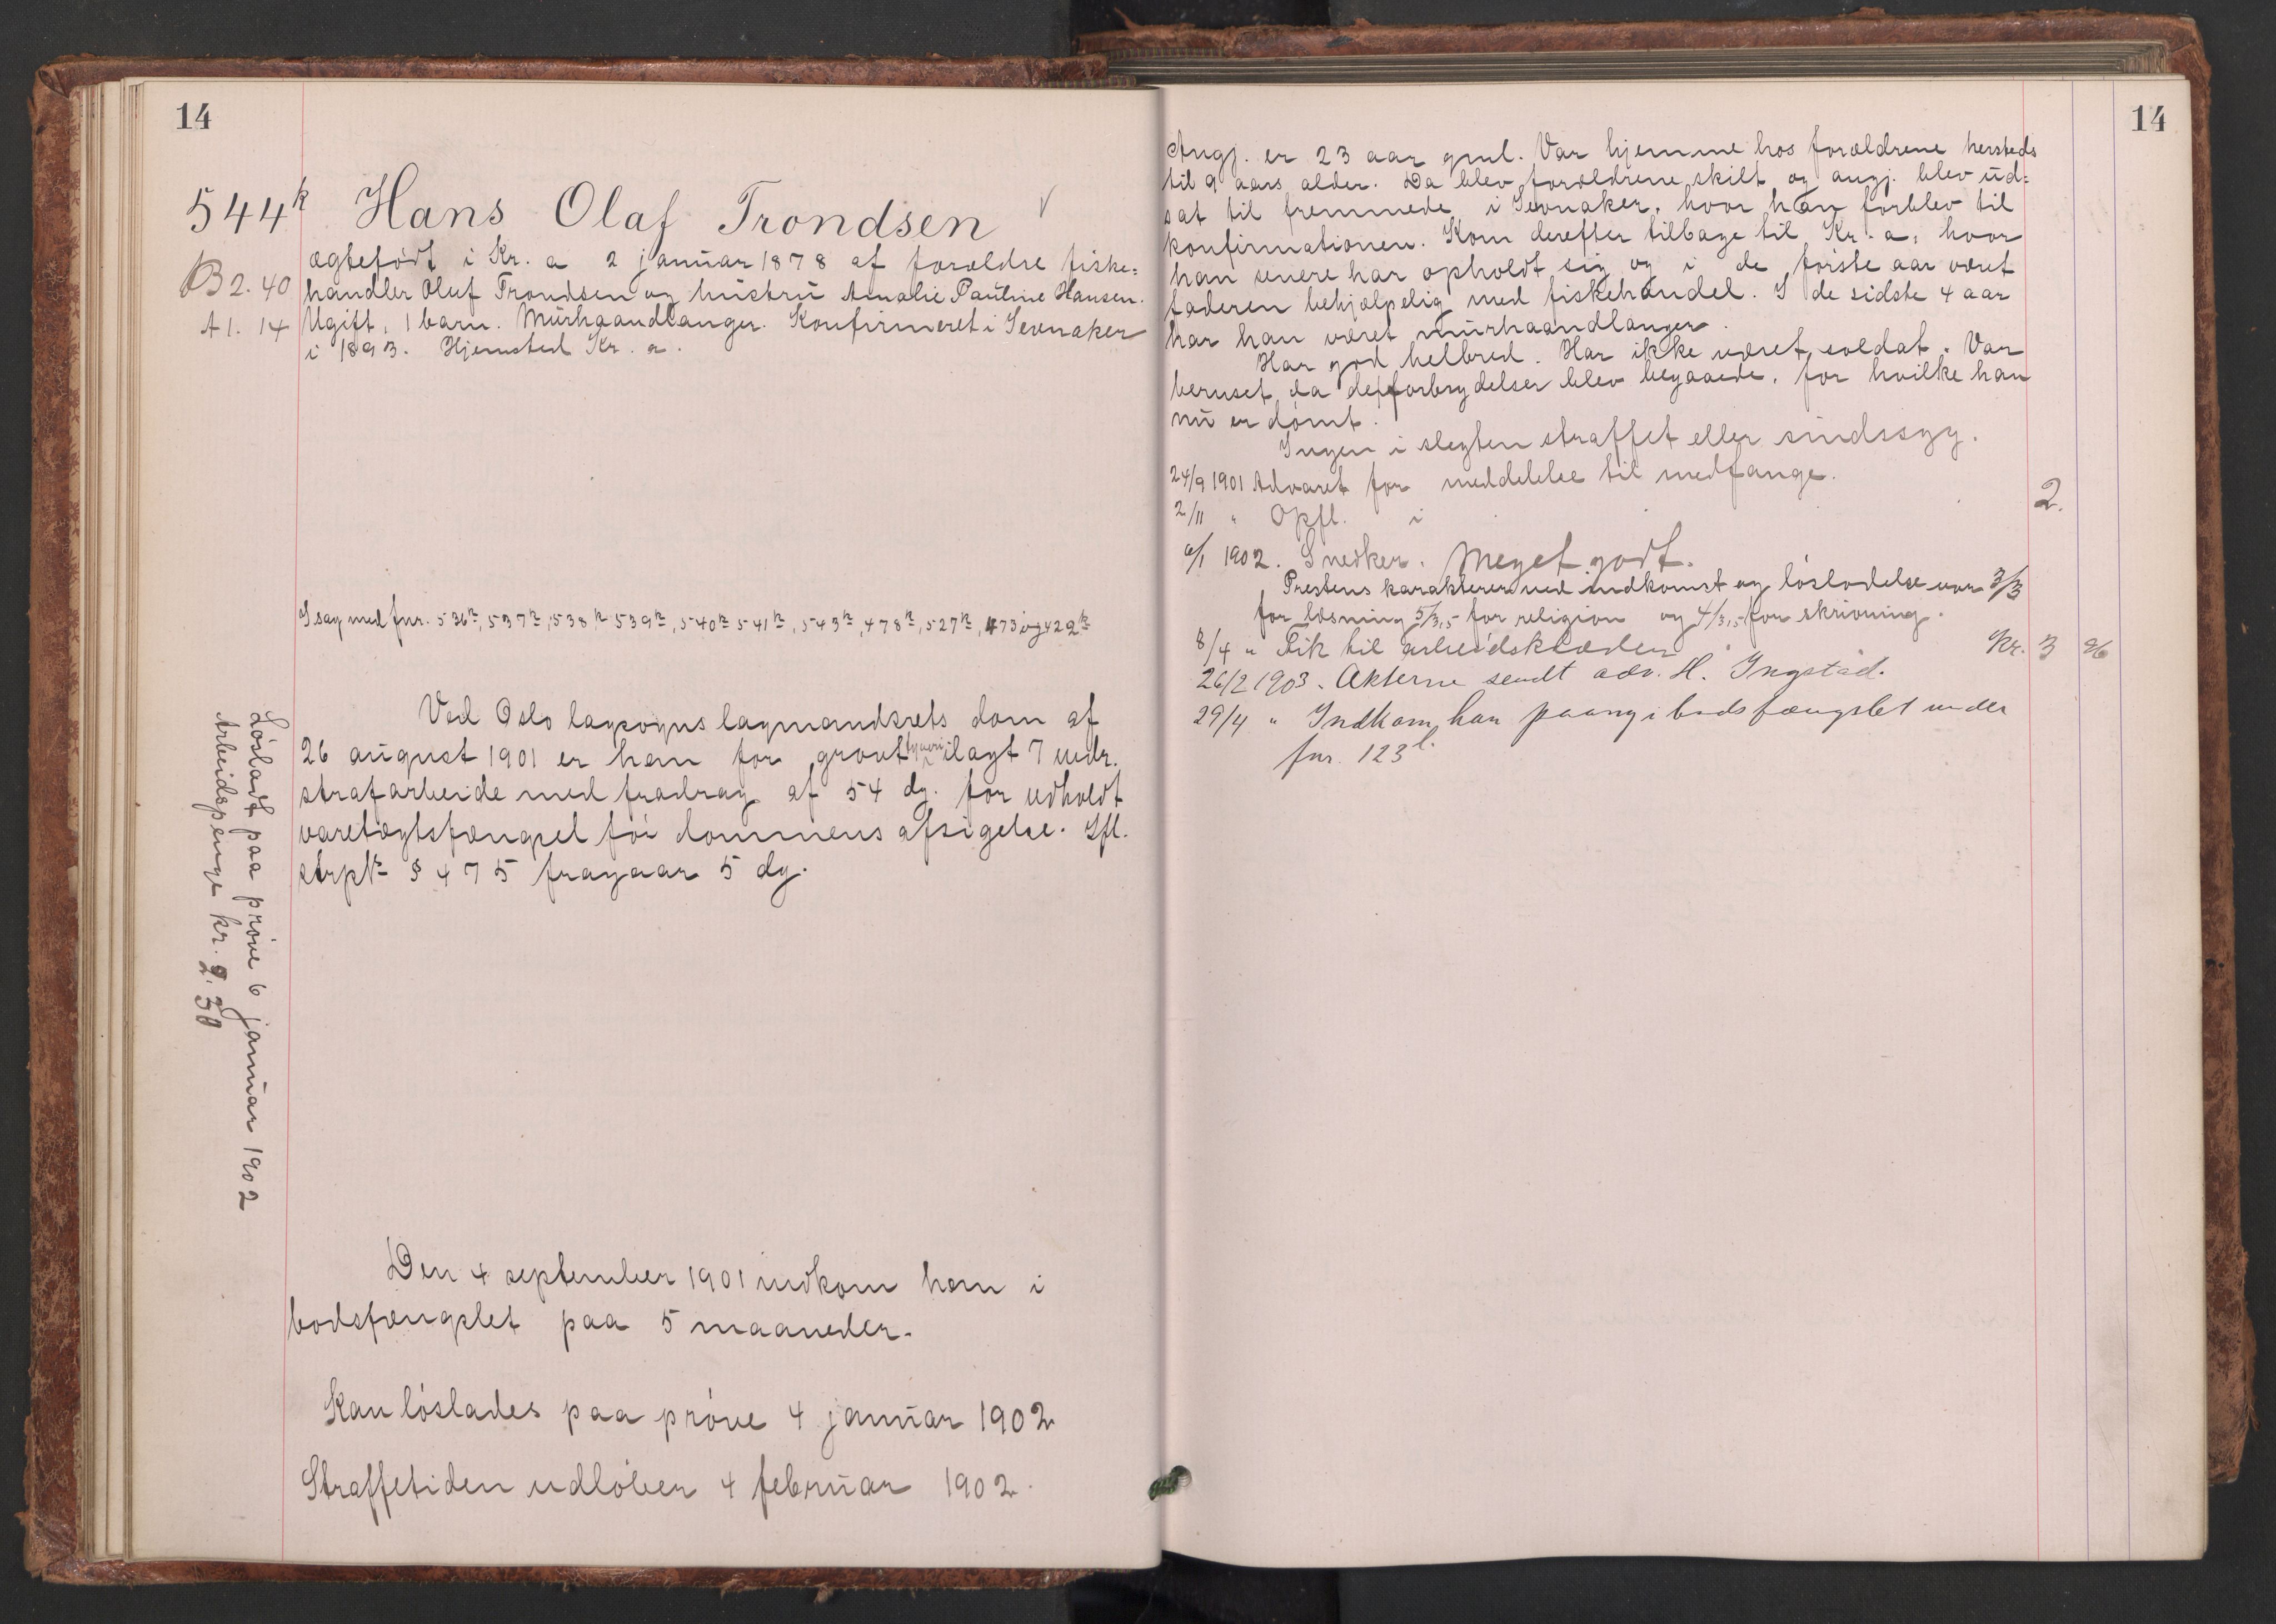 14
544k Hans Olaf Trondsen
ægtefødt i Kr.a 2 januar 1878 af forældre fiske=
B 2. 40 handler Oluf Trondsen og hustru Amalie Pauline Hansen.
A 1. 14 Ugift, 1 barn. Murhaandlanger. Konfirmeret i Jevnaker
i 1893. Hjemsted Kr.a.
I sag med fnr. 536k, 537k, 538k 539k, 540k 541k, 543k, 478k, 527k, 473 og 422k
Ved Oslo lagsogns lagmandsrets dom af
26 august 1901 er han for grovt tyveri ilagt 7 mdr.
strafarbeide med fradrag af 54 dg. for udholdt
varetægtsfængsel før dommens afsigelse. Ifl.
strpl. § 475 fragaar 5 dg.
Løsladt paa prøve 6 januar 1902
Arbeidspenge kr. 2.30
Den 4 september 1901 indkom han i
bodsfængslet paa 5 maaneder.
Kan løslades paa prøve 4 januar 1902
Straffetiden udløber 4 februar 1902.
14
Angj. er 23 aar gml. Var hjemme hos forældrene hersteds
til 9 aars alder. Da blev forældrene skilt og angj. blev ud=
sat til fremmede i Jevnaker, hvor han forblev til
konfirmationen. Kom derefter tilbage til Kr.a, hvor
han senere har opholdt sig og i de første aar været
faderen behjælpelig med fiskehandel. I de sidste 4 aar
har han været murhaandlanger.
Har god helbred. Har ikke været soldat. Var
beruset da de forbrydelser blev begaaede, for hvilke han
nu er dømt.
Ingen i slegten straffet eller sindssyg.
24/9 1901 Advaret for meddelelse til medfange.
2/11 " Opfl. i 2.
6/1 1902. Snedker. Meget godt.
Prestens karakterer ved indkomst og løsladelse var 3/3
for læsning 5/3,5 for religion og 4/3,5 for skrivning.
8/4 " Fik til arbeidsklæder Kr. 3 26
26/2 1903. Akterne sendt adv. H. Ingstad.
29/4 " Indkom han paany i bodsfængslet under
fnr. 123l.